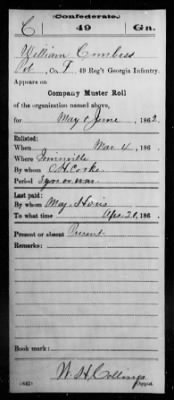 Confederate.
C 49 Gn.
William Combess
Pvt, Co. F, 49 Reg't Georgia Infantry.
Appears on
Company Muster Roll
of the organization named above,
for May & June, 1862.
Enlisted:
When Mar 4, 186 .
Where Irwinville
By whom
Period 3 yrs or war
Last paid:
By whom Maj.
To what time Apr. 30, 186 .
Present or absent Present
Remarks:
Book mark:
(642) Copyist.